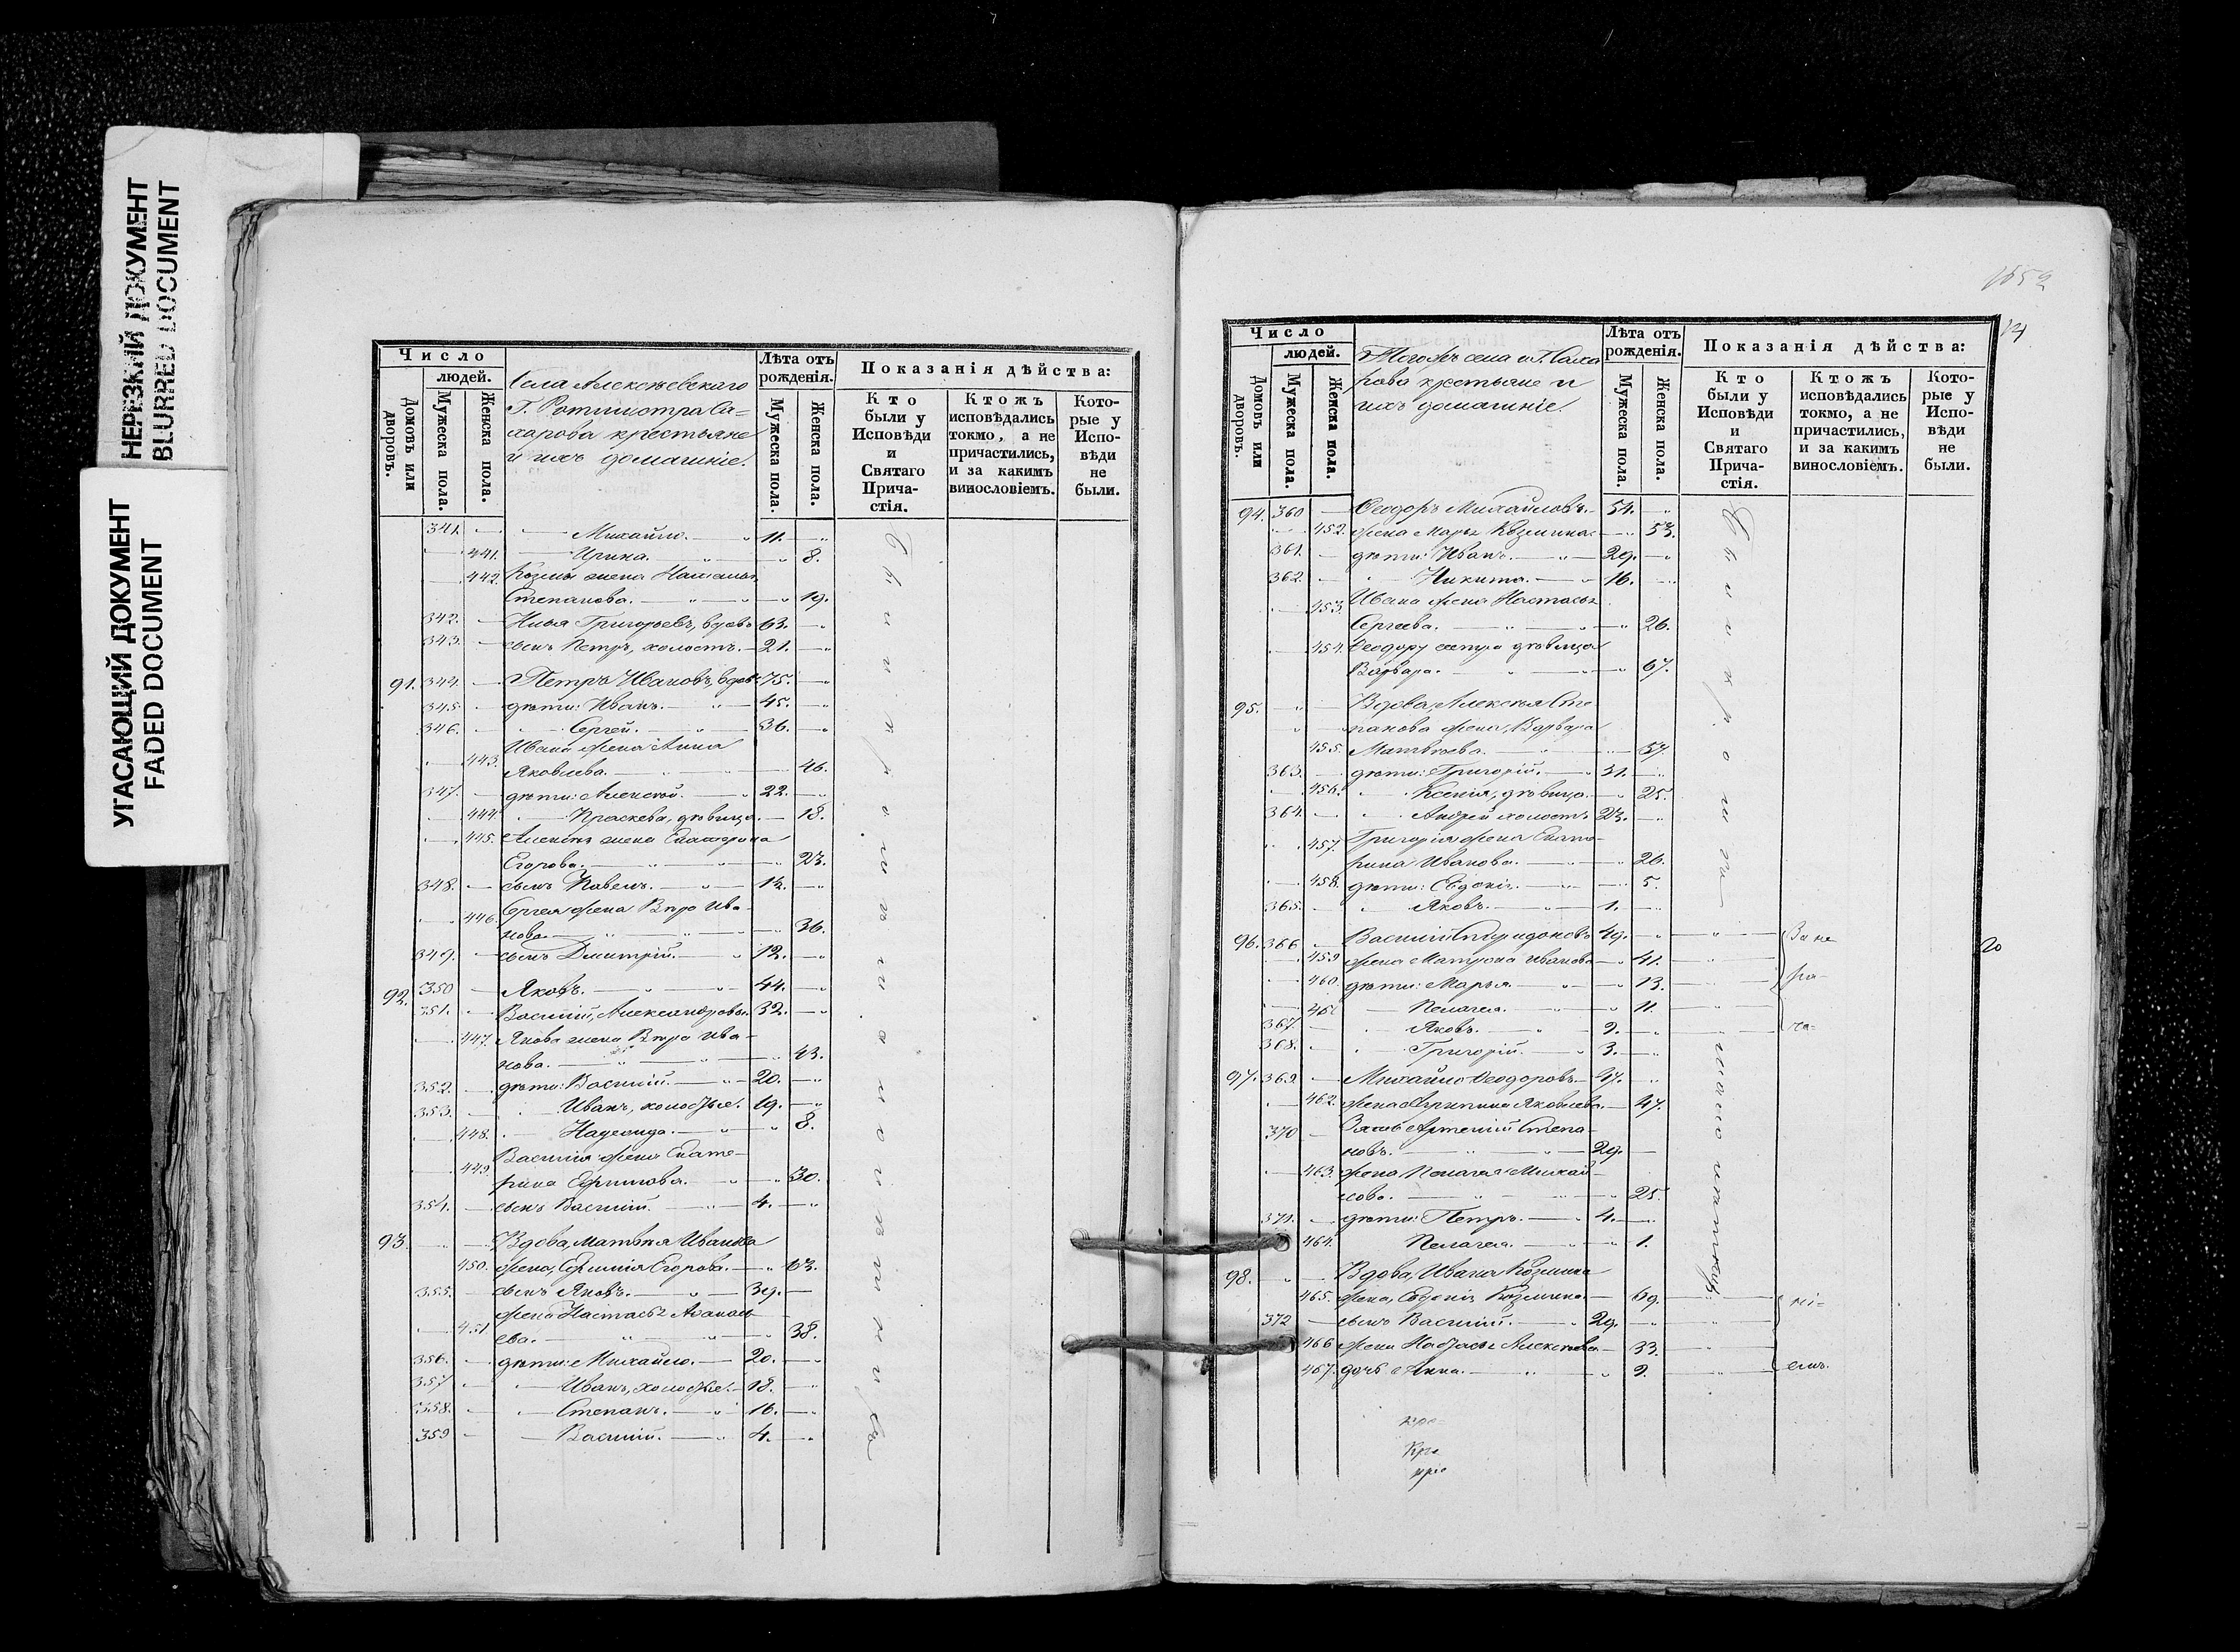 НЕРЕЗКИЙ ДОКУМЕНТ
BLURRED DOCUMENT
УГАСАЮЩИЙ ДОКУМЕНТ
FADED DOCUMENT
Число
людей.
Домовъ или дворовъ.
Мужеска пола.
Женска пола.
Села Алексѣевскаго
Г. Ротмистра Са=
харова крестьяне
и ихъ домашніе.
Лѣта отъ рожденія.
Мужеска пола.
Женска пола.
Показанія дѣйства:
Кто были у Исповѣди и Святаго Прича-стія.
Ктожъ исповѣдались токмо, а не причастились, и за какимъ винословіемъ.
Кото-рые у Испо-вѣди не были.
341. Михайло. 11.
441. Ирина. 8.
442. Козмы жена Наталья
Степанова. 19.
342. Илья Григорьевъ, вдовъ 63.
343. сынъ Петръ, холостъ. 21.
91. 344. Петръ Ивановъ, вдов. 75.
345. дѣти: Иванъ. 45.
346. Сергей. 36.
Ивана жена Анна
443. Яковлева. 46.
347. дѣти: Алексѣй. 22.
444. Праскева, дѣвица. 18.
445. Алексѣя жена Екатерина
Егорова. 23.
348. сынъ Павелъ. 14.
446. Сергея жена Вѣра Ива-
нова. 36.
349. сынъ Димитрій. 12.
92. 350 Яковъ. 44.
351. Василій, Александровы. 32.
447. Якова жена Вѣра Ива-
нова. 43.
352. дѣти: Василій. 20.
353. Иванъ, холостые. 19.
448. Надежда. 8.
Василія жена Екате-
449. рина Ефимова. 30.
354. сынъ Василій. 4.
93. Вдова, Матвѣя Иванова
450. жена, Ефимія Егорова. 63.
355. сынъ Яковъ. 39.
жена Настасья Афанась
451. ева. 38.
356. дѣти: Михайло. 20.
357 Иванъ, холостые. 18.
358. Степанъ. 16.
359 Василій. 4.
Число
людей.
Домовъ или дворовъ.
Мужеска пола.
Женска пола.
Тогожъ села и Г. Саха
рова крестьяне и
ихъ домашніе.
Лѣта отъ рожденія.
Мужеска пола.
Женска пола.
Показанія дѣйства:
Кто были у Исповѣди и Святаго Прича-стія.
Ктожъ исповѣдались токмо, а не причастились, и за какимъ винословіемъ.
Кото-рые у Испо-вѣди не были.
94. 360 Ѳеодоръ Михайловъ. 54.
452. жена Марья Козмина. 53.
361. дѣти: Иванъ. 29.
362. Никита. 16.
453. Ивана жена Настасья
Сергеева. 26.
454. Ѳеодору сестра дѣвица
Варвара. 67.
95. Вдова, Алексѣя Сте
панова жена, Варвара
455. Матвѣева. 57.
363. дѣти: Григорій. 31.
456. Ксенія, дѣвица. 25.
364. Андрей холостъ 23.
457. Григорія жена Екате-
рина Иванова. 26.
458. дѣти: Евдокія. 5.
365. Яковъ. 1.
96. 366 Василій Спиридоновъ 49. За не
459 жена Матрона Иванова 41.
460. дѣти: Марья. 13. ра-
461 Пелагея. 11.
367. Яковъ. 9. че-
368. Григорій. 3.
97. 369. Михайло Ѳеодоровъ 47.
462. жена Агрипина Яковлева. 47.
370 Зять Артемій Степа-
новъ. 29.
463. жена Пелагея Михай
лова. 25.
371. дѣти: Петръ. 4.
464. Пелагея. 1.
98. Вдова, Ивана Козмина
465. жена, Евдокія Козмина. 69. ні=
372 сынъ Василій. 29.
466 жена Настасья Алексѣева 33.
467. дочь Анна. 9. емъ.
20